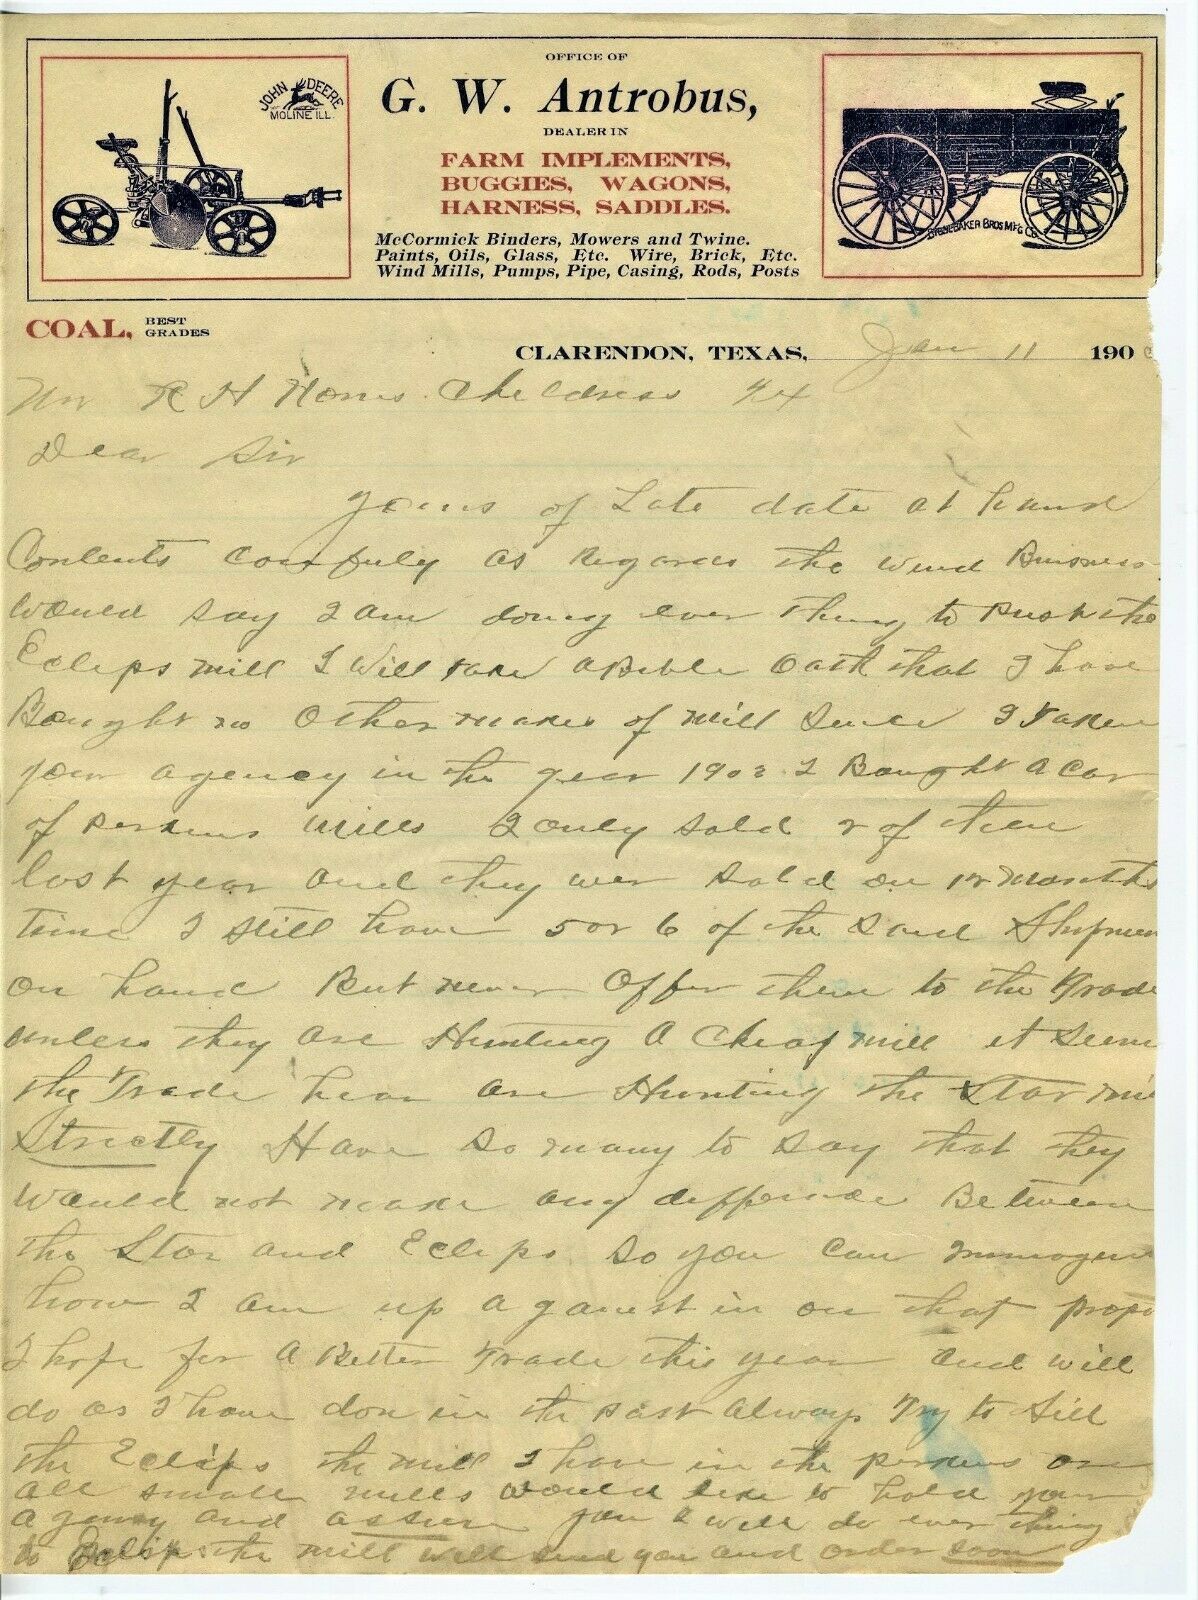 OFFICE OF
G. W. Antrobus,
DEALER IN
FARM IMPLEMENTS,
BUGGIES, WAGONS,
HARNESS, SADDLES.
McCormick Binders, Mowers and Twine.
Paints, Oils, Glass, Etc. Wire, Brick, Etc.
Wind Mills, Pumps, Pipe, Casing, Rods, Posts
JOHN DEERE
MOLINE ILL.
STUDEBAKER BROS MFG CO
COAL, BEST GRADES
CLARENDON, TEXAS, Jan 11 190
Mr R H Norris Childress Tx
Dear Sir
yours of Late date at hand
Contents as Regards the wind Buisness
would say I am doing ever thing to push the
Eclips mill I will take a Bible Oath that I have
Bought no Other makes of mill since I taken
your agency in the year 1902 I Bought a Car
of perkins mills I only sold 2 of them
last year and they wer sold on 12 months
time I still have 5 or 6 of the said Shipmen
on hand But never Offer them to the Trade
unless they are Hunting a Cheap mill it seem
the Trade hear are Hunting the Star mi
Strictly Have so many to say that they
would not make any difference Between
the Star and Eclips so you can immagen
how I am up aganest in on that propo
I hope for a Better Trade this year and will
do as I have don in the past always Try to Sill
the Eclips the mill I have in the perkins are
all small mills would like to hold your
agency and assure you I will do ever thing
to the mill will send you and order soon